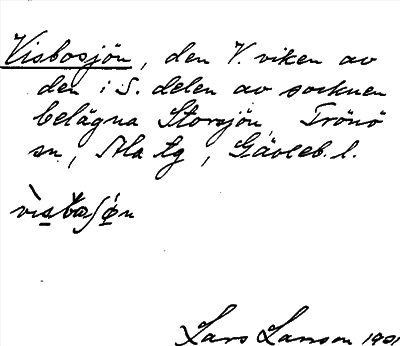 Visbosjön, den V. viken av
den i S. delen av socknen
belägna Storsjön, Trönö
sn, Ala tg, Gävleb. l.
Lars Larsson 1901